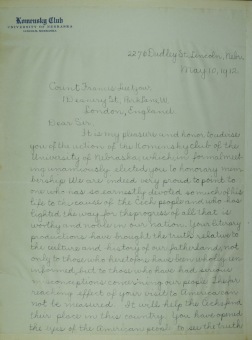 Komensky Club
UNIVERSITY OF NEBRASKA
LINCOLN, NEBRASKA
2276 Dudley St. Lincoln, Nebr.
May 10, 1912.
Count Francis Lützow,
London, England.
Dear Sir:
It is my pleasure and honor to advise
you of the action of the Komensky Club of the
University of Nebraska, which in formal meet-
ing unanimously elected you to honorary mem-
bership. We are indeed very proud to point to
one who has so earnestly devoted so much of his
life to the cause of the Čech people and who has
lighted the way for the progress of all that is
worthy and noble in our nation. Your literary
productions have brought the truth relative to
the culture and history of our fatherland, not
only to those who heretofore have been wholly un-
informed, but to those who have had serious
misconceptions concerning our people. The far
reaching effect of your visit to America can
not be measured. It will help the Čechs find
their place in this country. You have opened
the eyes of the American people to see the truth